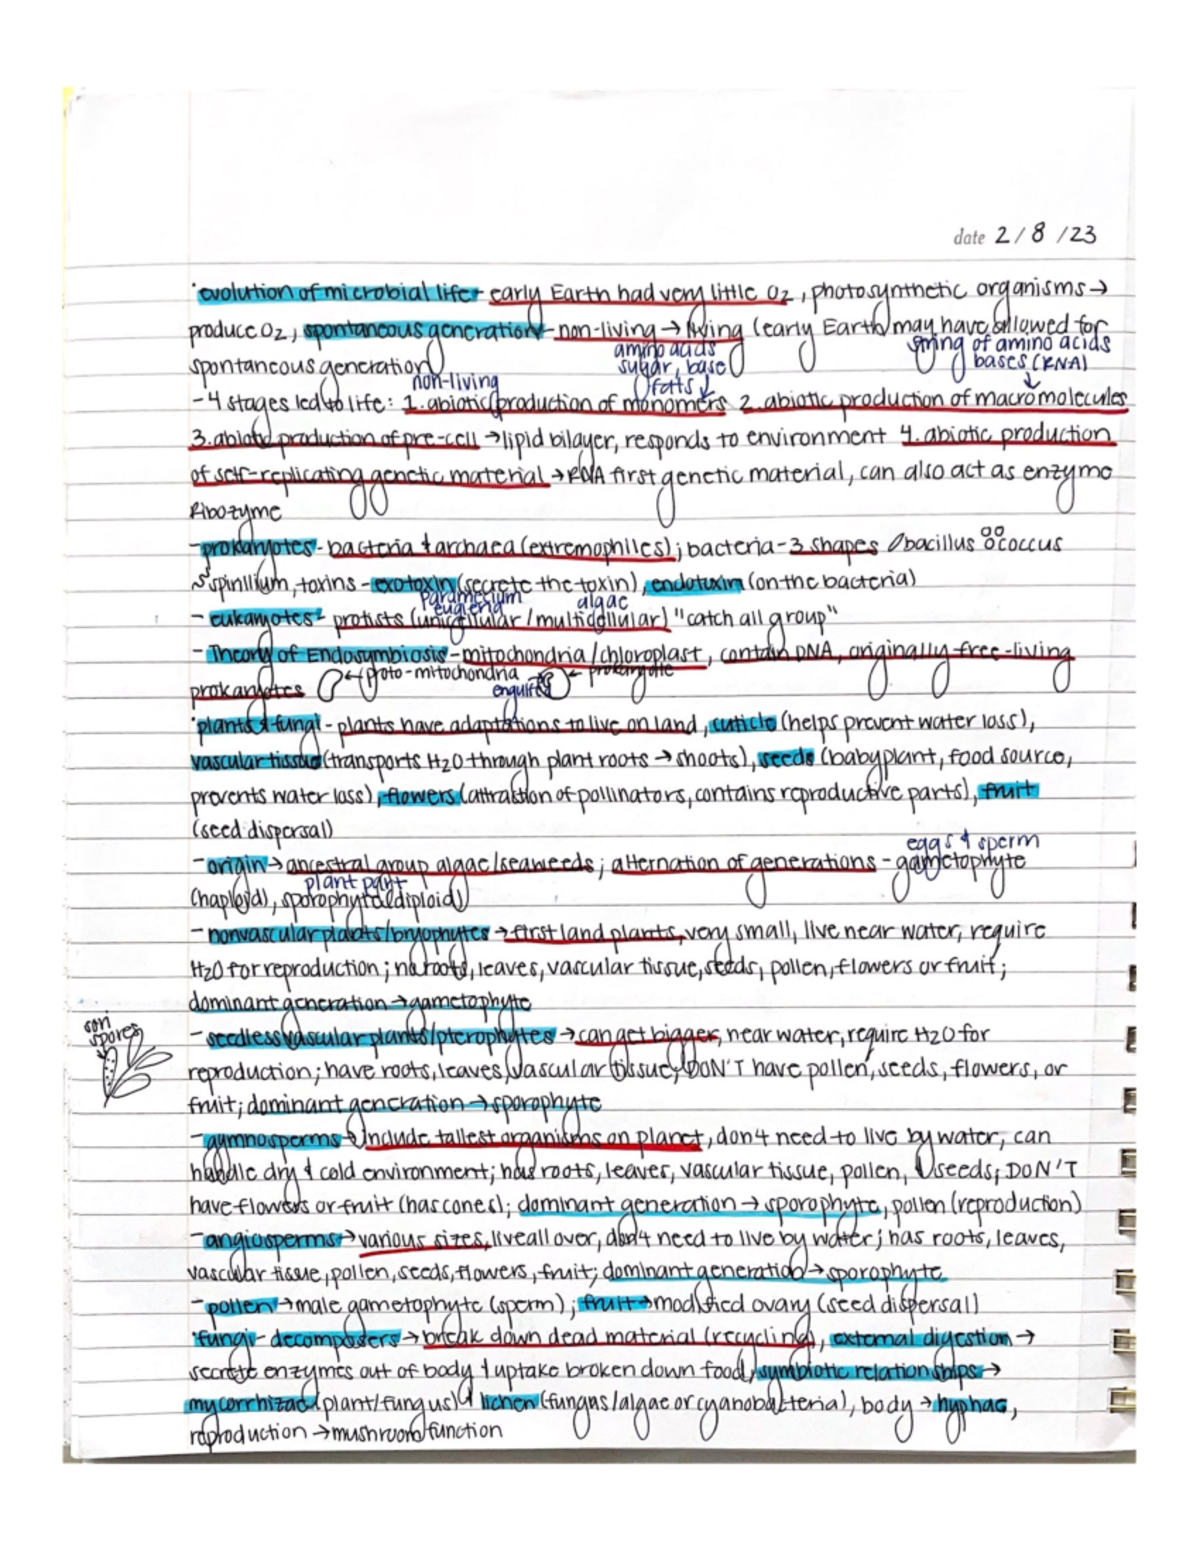 date 2/8/23
·evolution of microbial life- early Earth had very little O2, photosynthetic organisms→
produce O2, spontaneous generation- non-living → living (early Earth may have allowed for
amino acids string of amino acids
spontaneous generation)
sugar, base bases (RNA)
non-living fats ↓ ↓
- 4 stages led to life: 1. abiotic production of monomers 2. abiotic production of macromolecules
3. abiotic production of pre-cell → lipid bilayer, responds to environment 4. abiotic production
of self-replicating genetic material → RNA first genetic material, can also act as enzyme
Ribozyme
-prokaryotes- bacteria & archaea (extremophiles); bacteria- 3 shapes bacillus coccus
spirillium, toxins - exotoxin (secrete the toxin), endotoxin (on the bacteria)
paramecium algae
euglena
- eukaryotes- protists (unicellular/multicellular) "catch all group"
- Theory of Endosymbiosis - mitochondria/chloroplast, contain DNA, originally free-living
prokaryotes ←proto-mitochondria engulfed ← prokaryote
·plants & fungi - plants have adaptations to live on land, cuticle (helps prevent water loss),
vascular tissue (transports H2O through plant roots → shoots), seeds (baby plant, food source,
prevents water loss), flowers (attraction of pollinators, contains reproductive parts), fruit
(seed dispersal)
eggs & sperm
- origin → ancestral group algae/seaweeds; alternation of generations - gametophyte
plant part
(haploid), sporophyte (diploid)
- nonvascular plants/bryophytes → first land plants, very small, live near water, require
H2O for reproduction; no roots, leaves, vascular tissue, seeds, pollen, flowers or fruit;
dominant generation → gametophyte
sori
spores
- seedless vascular plants/pterophytes → can get bigger, near water, require H2O for
reproduction; have roots, leaves, vascular tissue; DON'T have pollen, seeds, flowers, or
fruit; dominant generation → sporophyte
- gymnosperms → include tallest organisms on planet, don't need to live by water, can
handle dry & cold environment; has roots, leaves, vascular tissue, pollen, seeds; DON'T
have flowers or fruit (has cones); dominant generation → sporophyte, pollen (reproduction)
- angiosperms → various sizes, live all over, don't need to live by water; has roots, leaves,
vascular tissue, pollen, seeds, flowers, fruit; dominant generation → sporophyte
- pollen → male gametophyte (sperm); fruit → modified ovary (seed dispersal)
·fungi- decomposers → break down dead material (recycling), external digestion →
secrete enzymes out of body & uptake broken down food, symbiotic relationships →
mycorrhizae (plant/fungus) & lichen (fungus/algae or cyanobacteria), body → hyphae,
reproduction → mushroom function